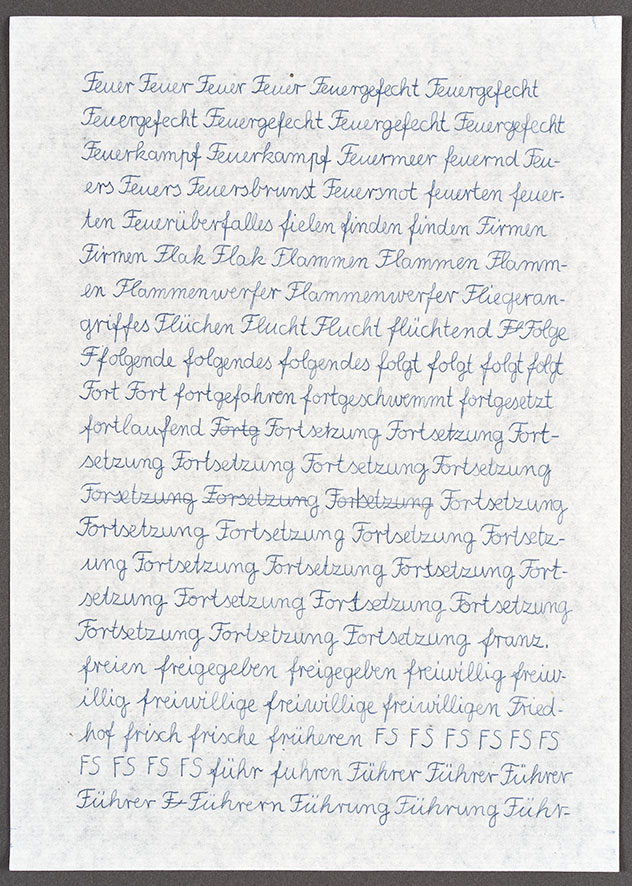 Feuer Feuer Feuer Feuer Feuergefecht Feuergefecht
Feuergefecht Feuergefecht Feuergefecht Feuergefecht
Feuerkampf Feuerkampf Feuermeer feuernd Feu-
ers Feuers Feuersbrunst Feuersnot feuerten feuer-
ten Feuerüberfalles fielen finden finden Firmen
Firmen Flak Flak Flammen Flammen Flamm-
en Flammenwerfer Flammenwerfer Fliegeran-
griffes Flüchen Flucht Flucht flüchtend F Folge
Ffolgende folgendes folgendes folgt folgt folgt folgt
Fort Fort fortgefahren fortgeschwemmt fortgesetzt
fortlaufend Fortg Fortsetzung Fortsetzung Fort-
setzung Fortsetzung Fortsetzung Fortsetzung
Forsetzung Forsetzung Forsetzung Fortsetzung
Fortsetzung Fortsetzung Fortsetzung Fortsetz-
ung Fortsetzung Fortsetzung Fortsetzung Fort-
setzung Fortsetzung Fortsetzung Fortsetzung
Fortsetzung Fortsetzung Fortsetzung franz.
freien freigegeben freigegeben freiwillig freiw-
illig freiwillige freiwillige freiwilligen Fried-
hof frisch frische früheren FS FS FS FS FS FS
FS FS FS FS führ fuhren Führer Führer Führer
Führer F Führern Führung Führung Führ-